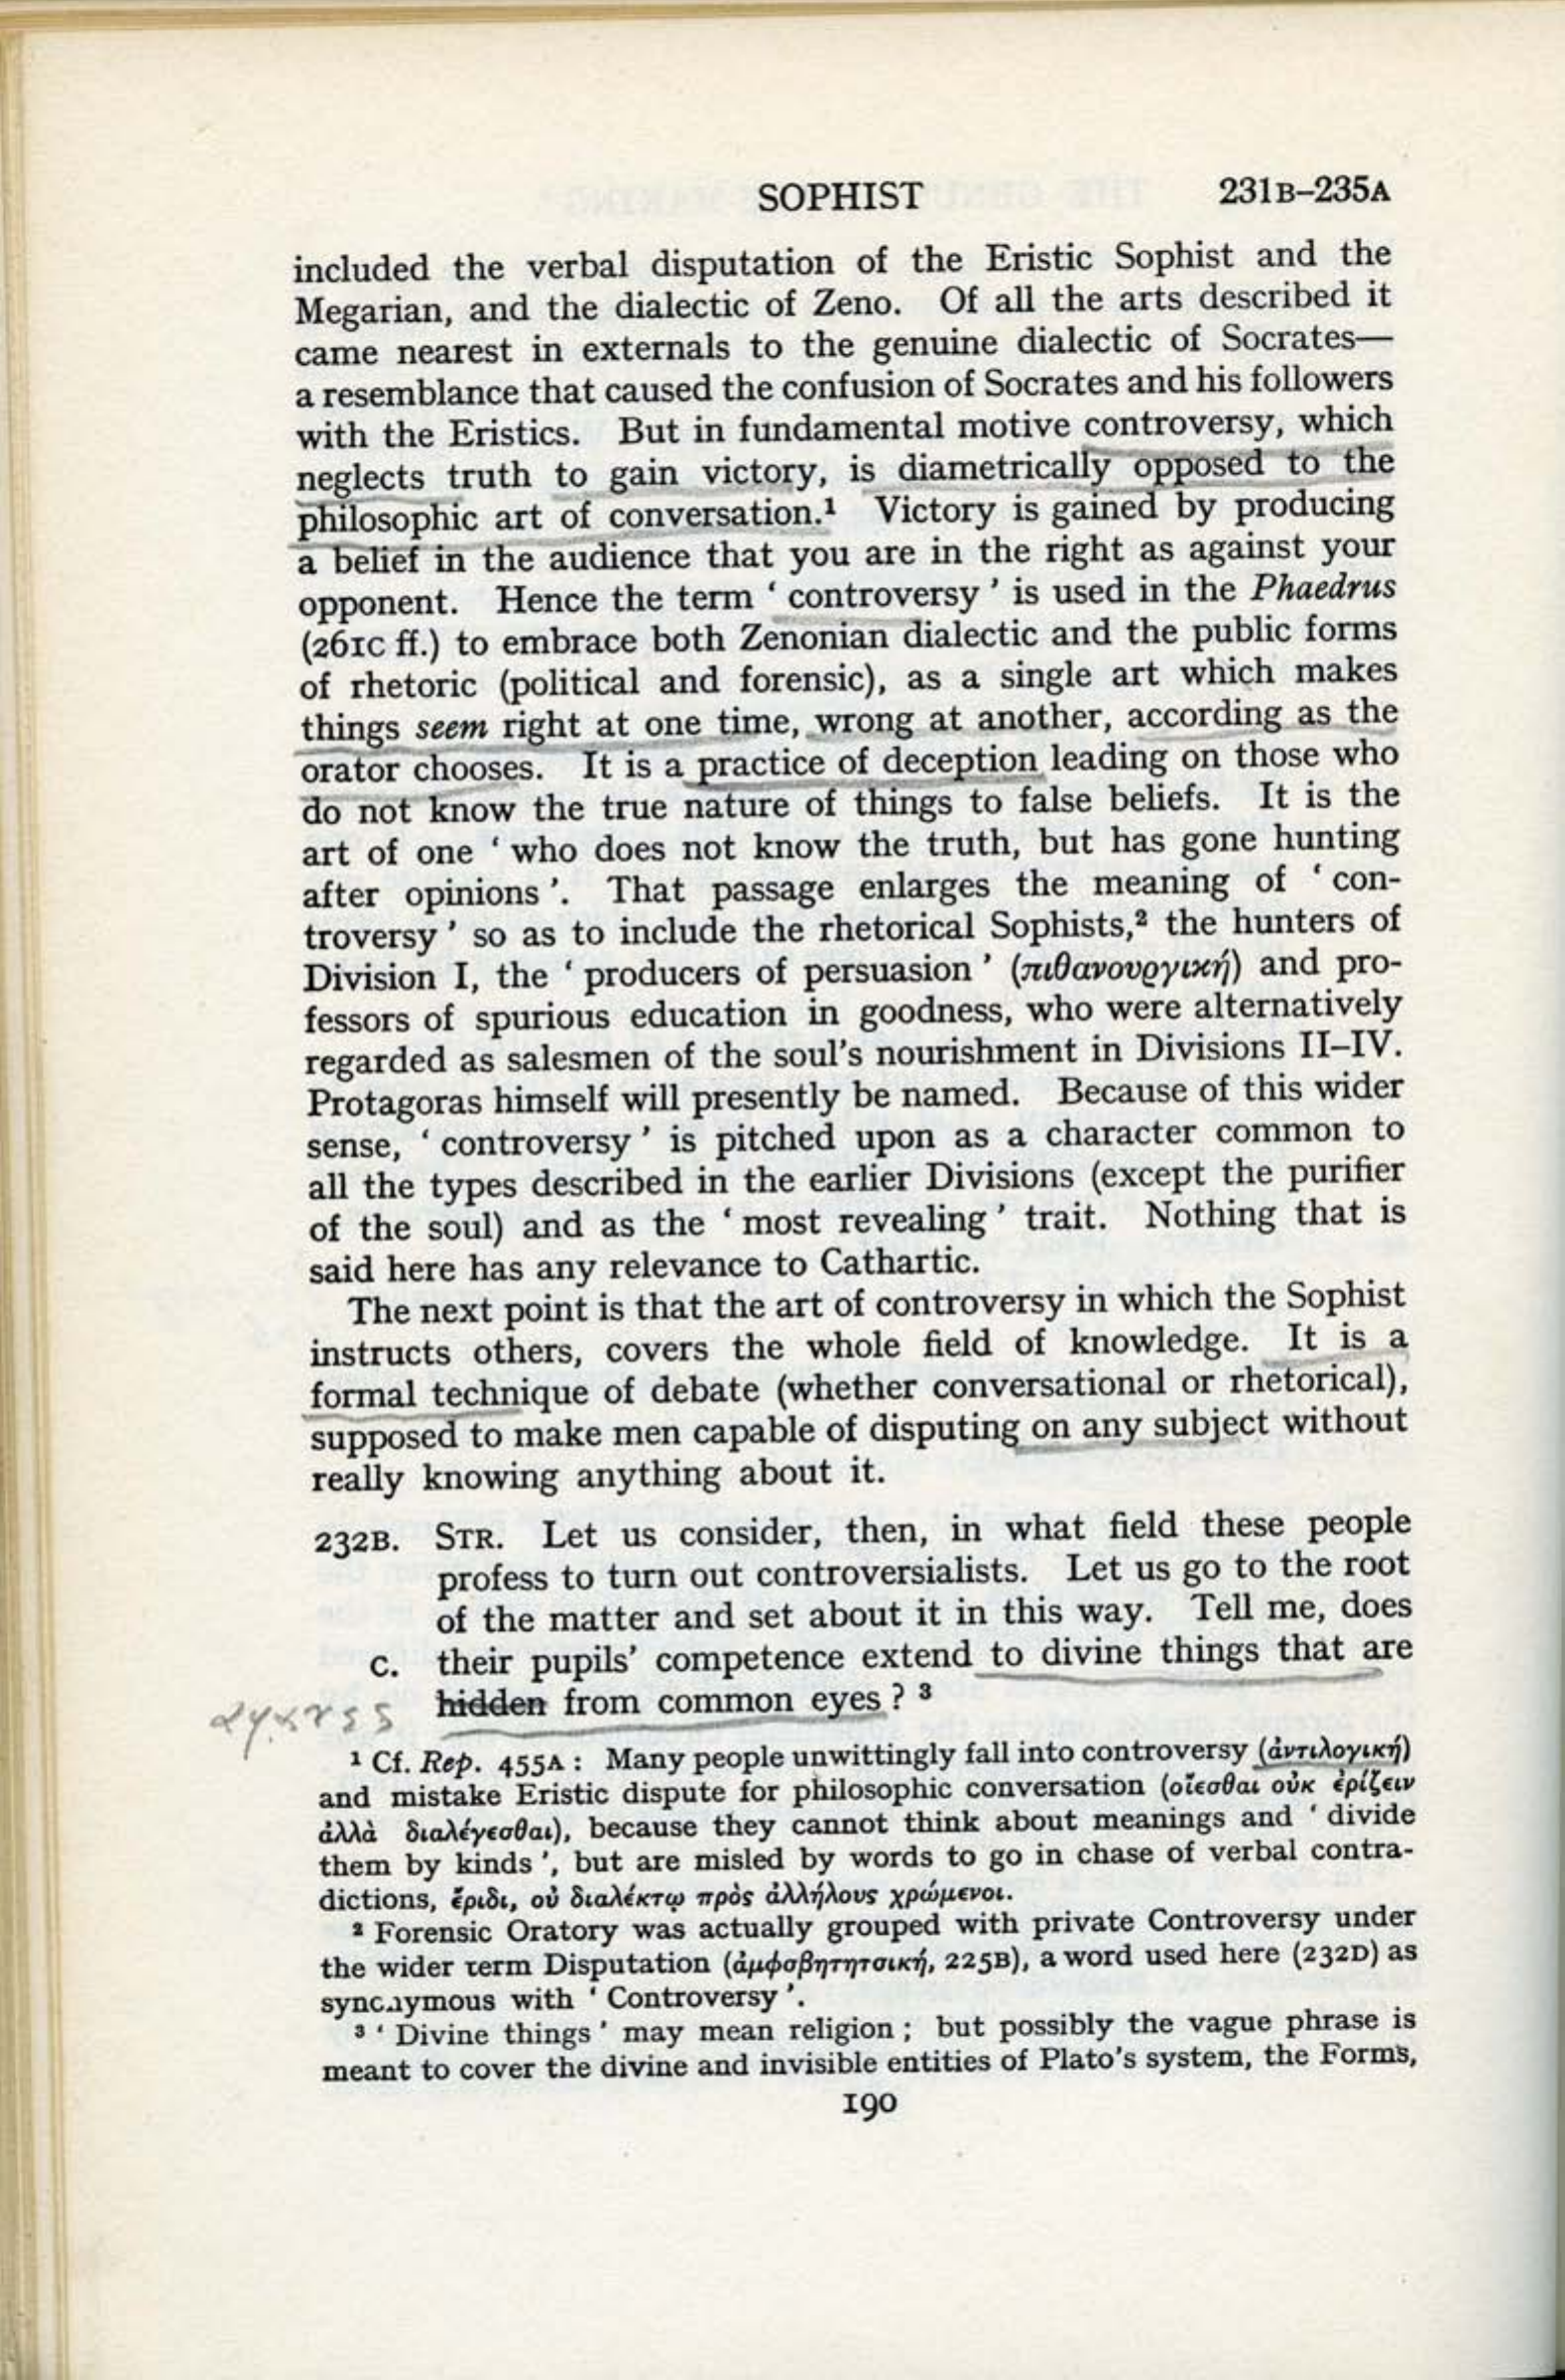 SOPHIST 231B–235A
included the verbal disputation of the Eristic Sophist and the
Megarian, and the dialectic of Zeno. Of all the arts described it
came nearest in externals to the genuine dialectic of Socrates—
a resemblance that caused the confusion of Socrates and his followers
with the Eristics. But in fundamental motive controversy, which
neglects truth to gain victory, is diametrically opposed to the
philosophic art of conversation.¹ Victory is gained by producing
a belief in the audience that you are in the right as against your
opponent. Hence the term ‘ controversy ’ is used in the Phaedrus
(261C ff.) to embrace both Zenonian dialectic and the public forms
of rhetoric (political and forensic), as a single art which makes
things seem right at one time, wrong at another, according as the
orator chooses. It is a practice of deception leading on those who
do not know the true nature of things to false beliefs. It is the
art of one ‘ who does not know the truth, but has gone hunting
after opinions ’. That passage enlarges the meaning of ‘ con-
troversy ’ so as to include the rhetorical Sophists,² the hunters of
Division I, the ‘ producers of persuasion ’ (πιθανουργική) and pro-
fessors of spurious education in goodness, who were alternatively
regarded as salesmen of the soul’s nourishment in Divisions II–IV.
Protagoras himself will presently be named. Because of this wider
sense, ‘ controversy ’ is pitched upon as a character common to
all the types described in the earlier Divisions (except the purifier
of the soul) and as the ‘ most revealing ’ trait. Nothing that is
said here has any relevance to Cathartic.
The next point is that the art of controversy in which the Sophist
instructs others, covers the whole field of knowledge. It is a
formal technique of debate (whether conversational or rhetorical),
supposed to make men capable of disputing on any subject without
really knowing anything about it.
232B. STR. Let us consider, then, in what field these people
profess to turn out controversialists. Let us go to the root
of the matter and set about it in this way. Tell me, does
C. their pupils’ competence extend to divine things that are
hidden from common eyes ? ³
¹ Cf. Rep. 455A : Many people unwittingly fall into controversy (ἀντιλογική)
and mistake Eristic dispute for philosophic conversation (οἴεσθαι οὐκ ἐρίζειν
ἀλλὰ διαλέγεσθαι), because they cannot think about meanings and ‘ divide
them by kinds ’, but are misled by words to go in chase of verbal contra-
dictions, ἔριδι, οὐ διαλέκτῳ πρὸς ἀλλήλους χρώμενοι.
² Forensic Oratory was actually grouped with private Controversy under
the wider term Disputation (ἀμφσβητητσική, 225B), a word used here (232D) as
synonymous with ‘ Controversy ’.
³ ‘ Divine things ’ may mean religion ; but possibly the vague phrase is
meant to cover the divine and invisible entities of Plato’s system, the Forms,
190